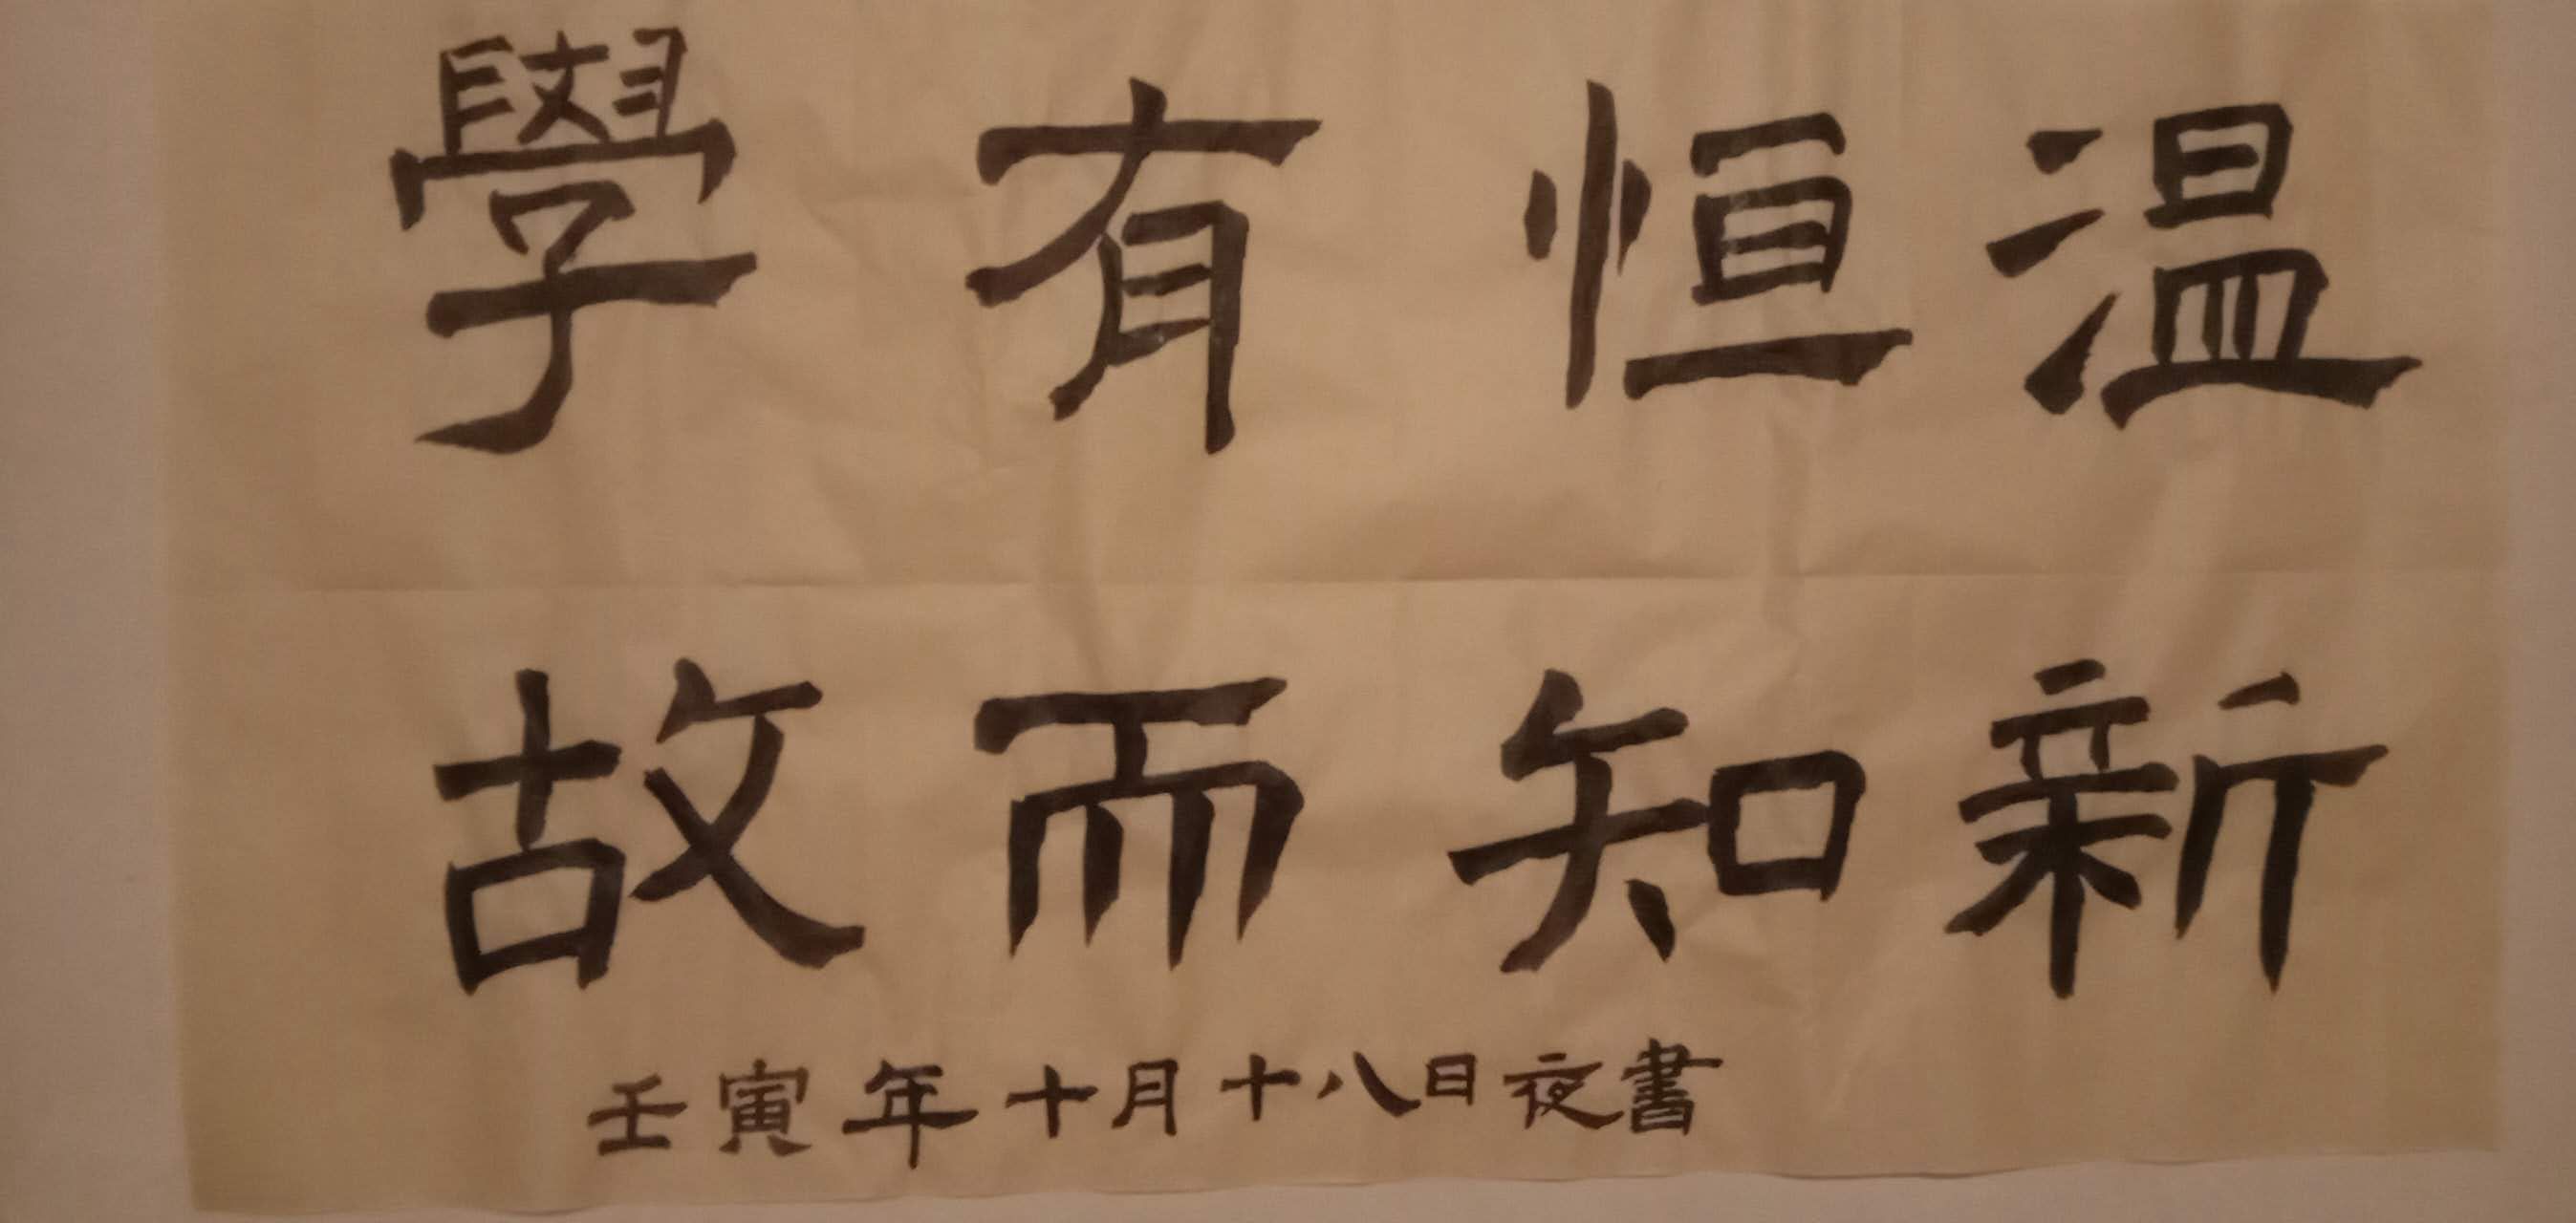 學有恒温
故而知新
壬寅年十月十八日夜書